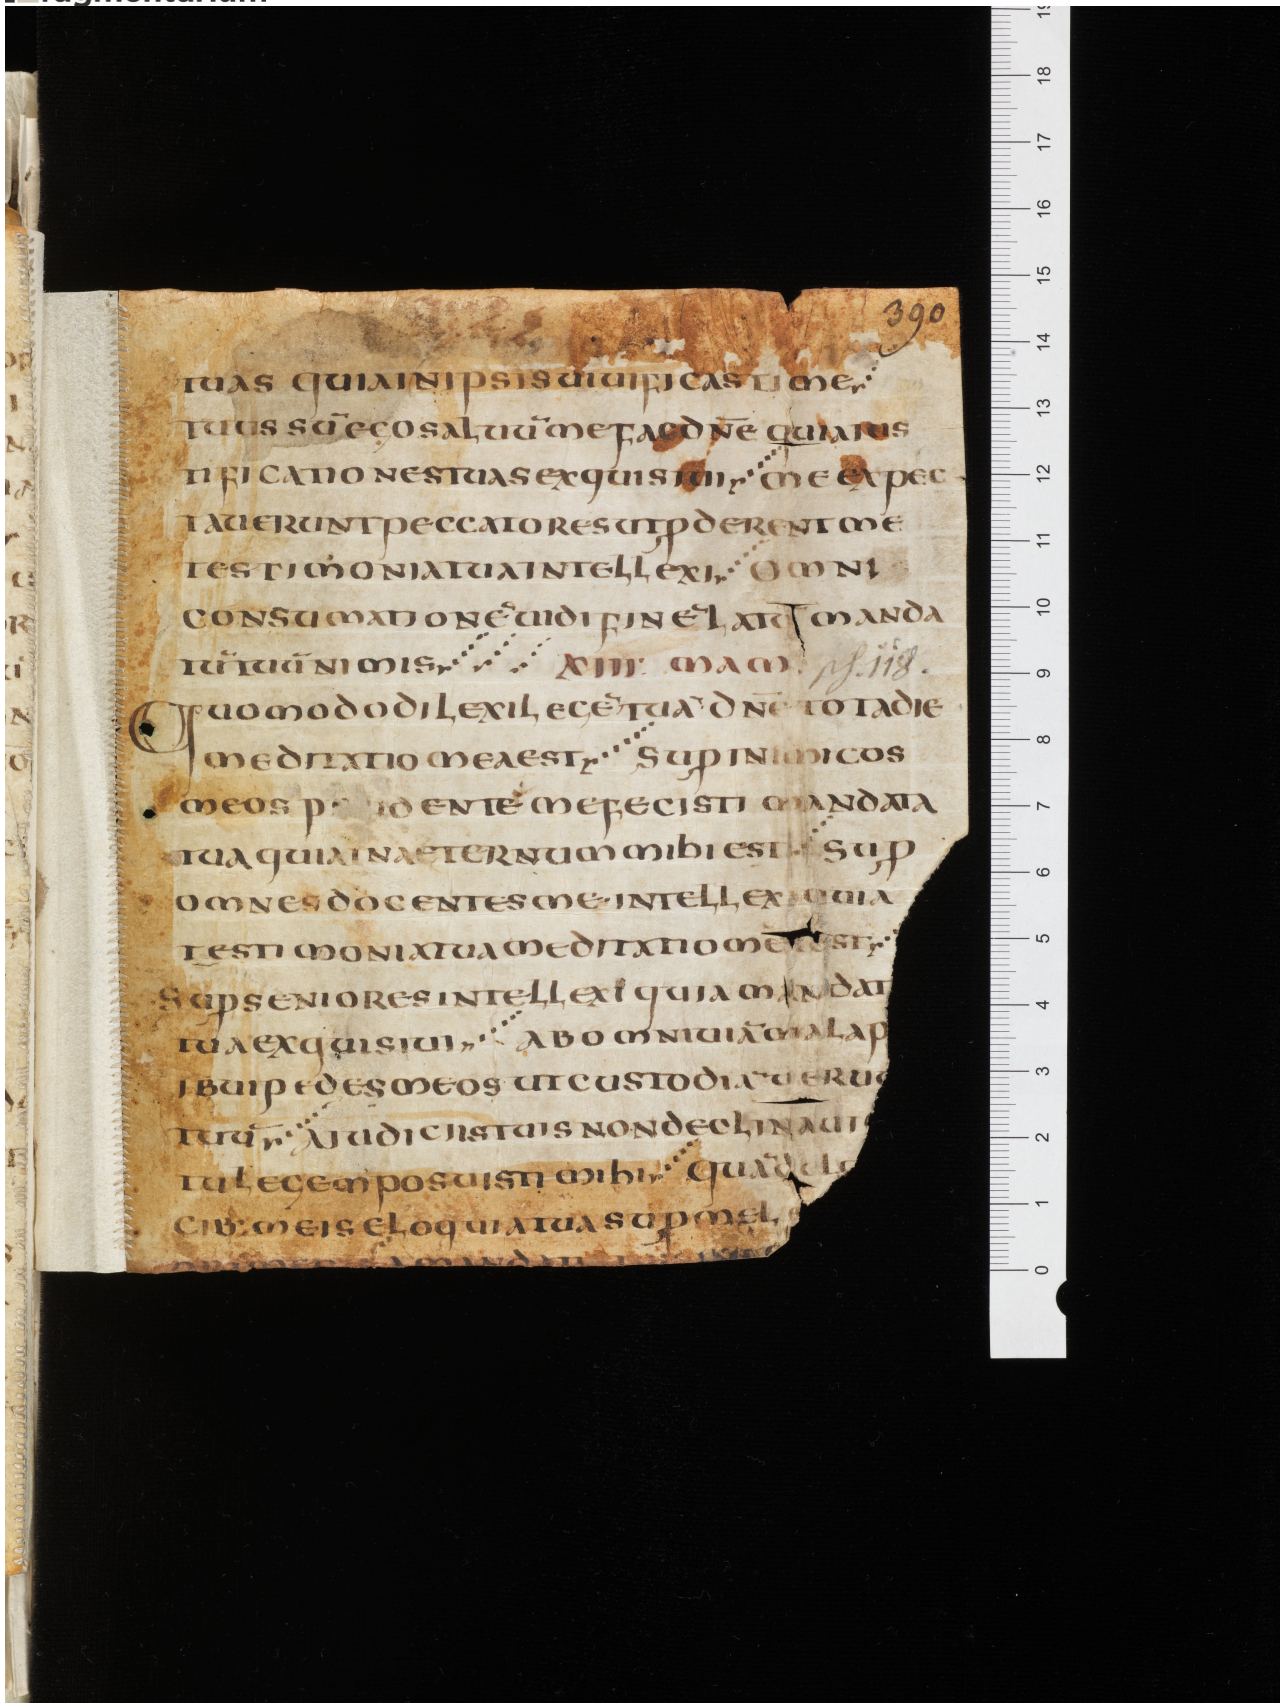 390
TUAS QUIAINIPSISUIUIFICASTIME
TUUS SŪ EGOSALUŪ MEFACDNE QUIAIUS
TIFICATIONESTUASEXQUISIUI MEEXPEC
TAUERUNTPECCATORESUTPDERENTME
TESTIMONIATUAINTELLEXI OMNI
CONSUMATIONĒ UIDIFINĒ LATŪ MANDA
TŪ TUŪ NIMIS XIII MAM ps. 118.
QUOMODODILEXILEGĒ TUĀ DNE TOTADIE
MEDITATIOMEAEST SUPINIMICOS
MEOS P DENTĒ MEFECISTI MANDATA
TUAQUIAINAETERNUMMIHIEST SUP
OMNESDOCENTESME INTELLEXI QUIA
TESTIMONIATUAMEDITATIOMEAEST
SUPSENIORESINTELLEXI QUIAMANDAT
TUAEXQUISIUI ABOMNIUIĀ MALAP
IBUIPEDESMEOS UTCUSTODIĀ UERU
TUŪ AIUDICIISTUISNONDECLINAUI
TULEGEMPOSUISTI MIHI QUĀ DUL
CIB·MEISELOQUIATUASUPMEL